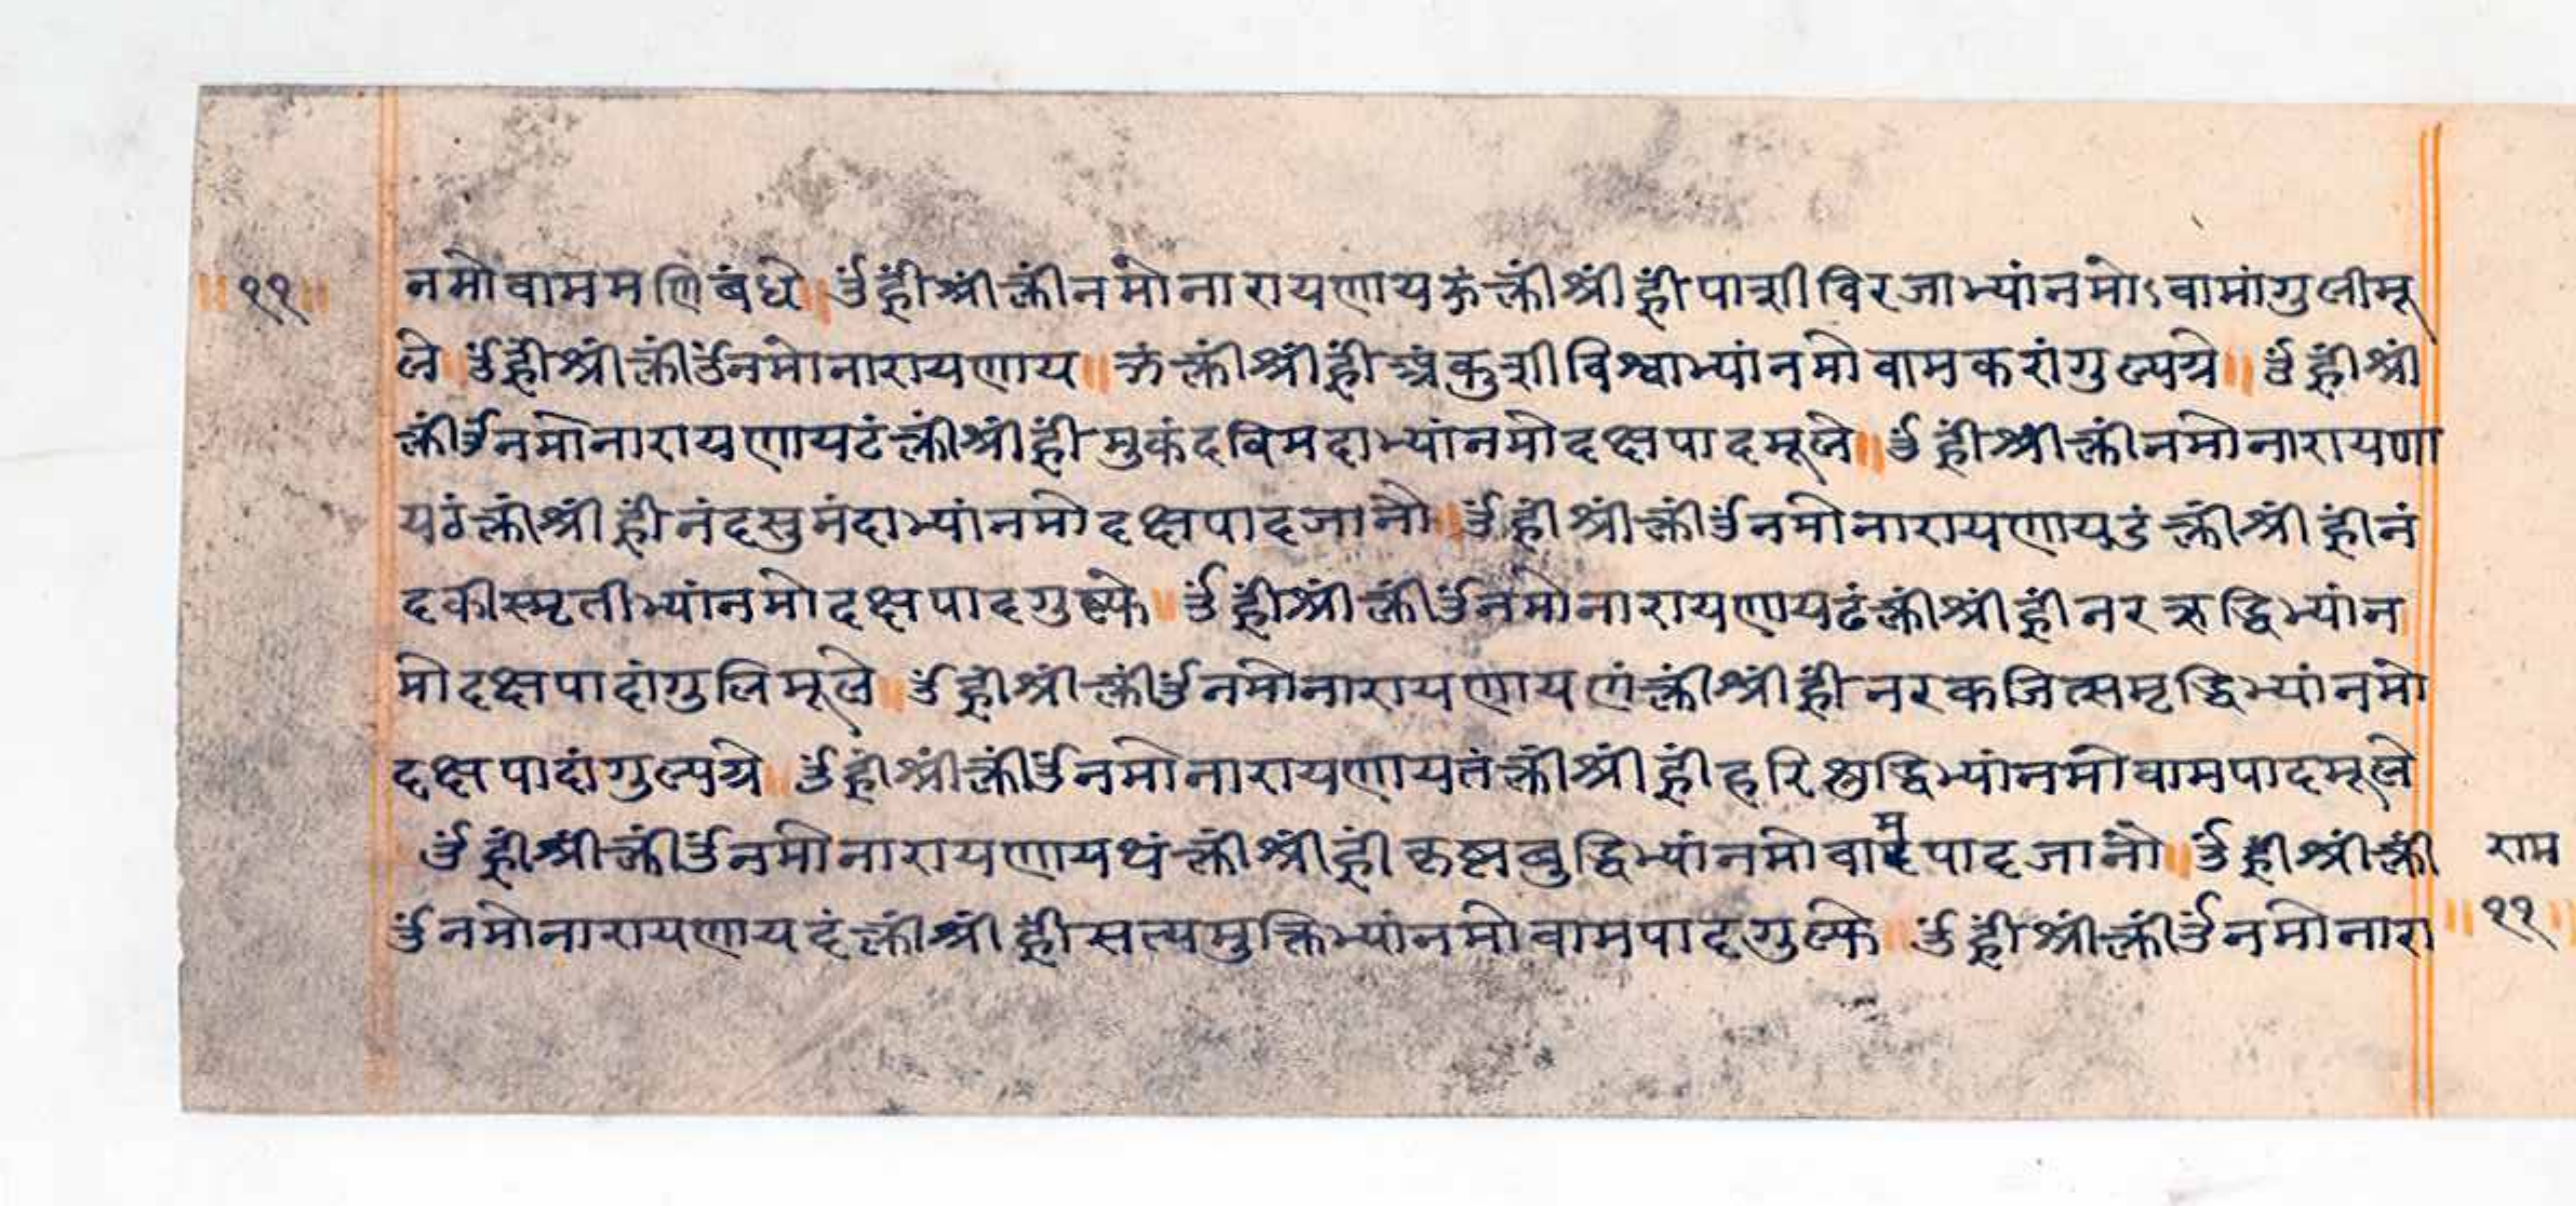 ॥११॥ नमोवाममणिबंधे॥ॐह्रींश्रींक्लींनमोनारायणायझंक्लींश्रींह्रींपाशीविरजाभ्यांनमोऽवामांगुलीमू
ले॥ॐह्रींश्रींक्लींॐनमोनारायणाय॥ञंक्लींश्रींह्रींअंकुशीविश्वाभ्यांनमोवामकरांगुल्यग्रे॥ॐह्रींश्रीं
क्लींॐनमोनारायणायटंक्लींश्रींह्रींमुकंदविमदाभ्यांनमोदक्षपादमूले॥ॐह्रींश्रींक्लींनमोनारायणा
यठंक्लींश्रींह्रींनंदसुनंदाभ्यांनमोदक्षपादजानौ॥ॐह्रींश्रींक्लींॐनमोनारायणायडंक्लींश्रींह्रींनं
दकीस्मृतीभ्यांनमोदक्षपादगुल्फे॥ॐह्रींश्रींक्लींॐनमोनारायणायढंक्लींश्रींह्रींनरऋद्धिभ्यांन
मोदक्षपादांगुलिमूले॥ॐह्रींश्रींक्लींॐनमोनारायणायणंक्लींश्रींह्रींनरकजित्समृद्धिभ्यांनमो
दक्षपादांगुल्यग्रे॥ॐह्रींश्रींक्लींॐनमोनारायणायतंक्लींश्रींह्रींहरिशुद्धिभ्यांनमोवामपादमूले
ॐह्रींश्रींक्लींॐनमोनारायणायथंक्लींश्रींह्रींकृष्णबुद्धिभ्यांनमोवामपादजानौ॥ॐह्रींश्रींक्लीं राम
ॐनमोनारायणायदंक्लींश्रींह्रींसत्यमुक्तिभ्यांनमोवामपादगुल्फे॥ॐह्रींश्रींक्लींॐनमोनारा ॥११॥